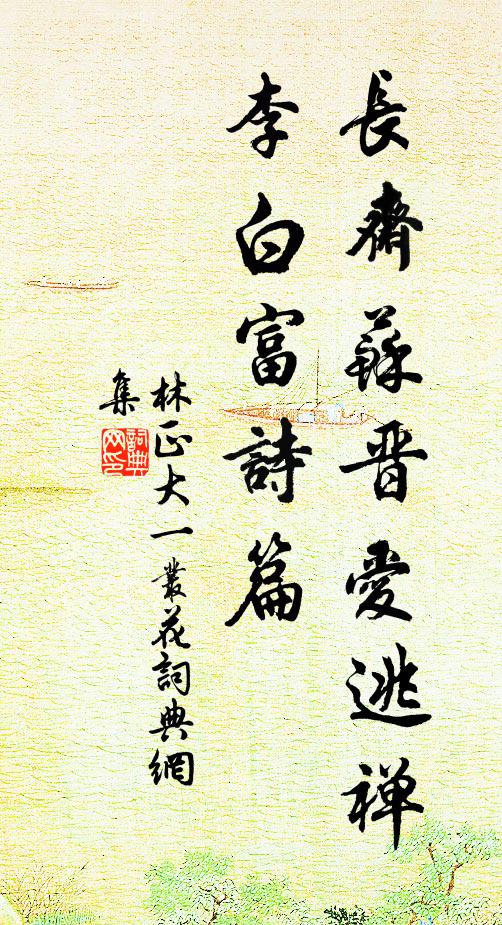 長齋蘇晉愛逃禪
李白富詩篇
林正大一叢花詞典網
集
詞典网印